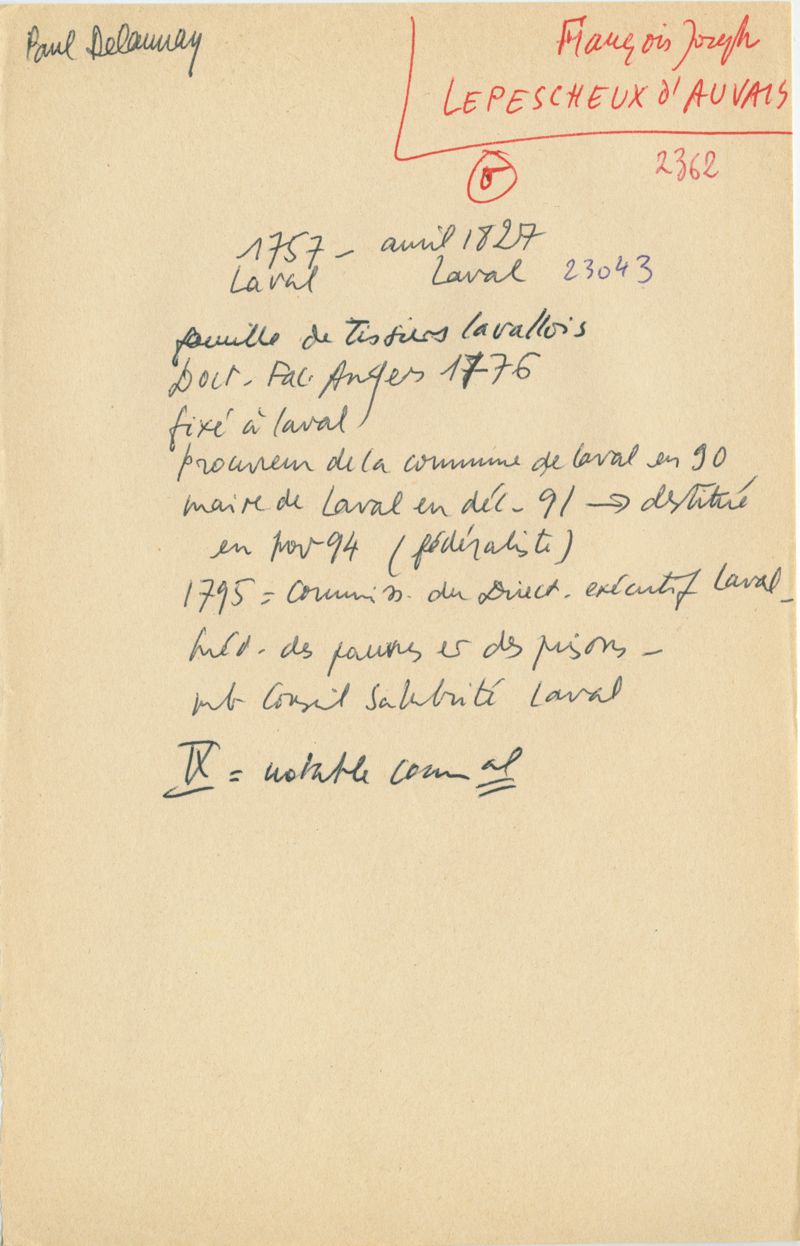 Paul Delaunay
François Joseph
LEPESCHEUX d'AUVAIS
2362
1757 - avril 1827
Laval Laval 23043
famille de tissiers lavallois
Doct. Fac. Angers 1776
fixé à Laval
procureur de la commune de Laval en 90
maire de Laval en déc. 91 → destitué
en nov 94 (fédéraliste)
1795 = Commiss. du Direct. exécutif Laval -
Méd. des pauvres et des prisons -
mb Conseil Salubrité Laval
IX = notable comm al